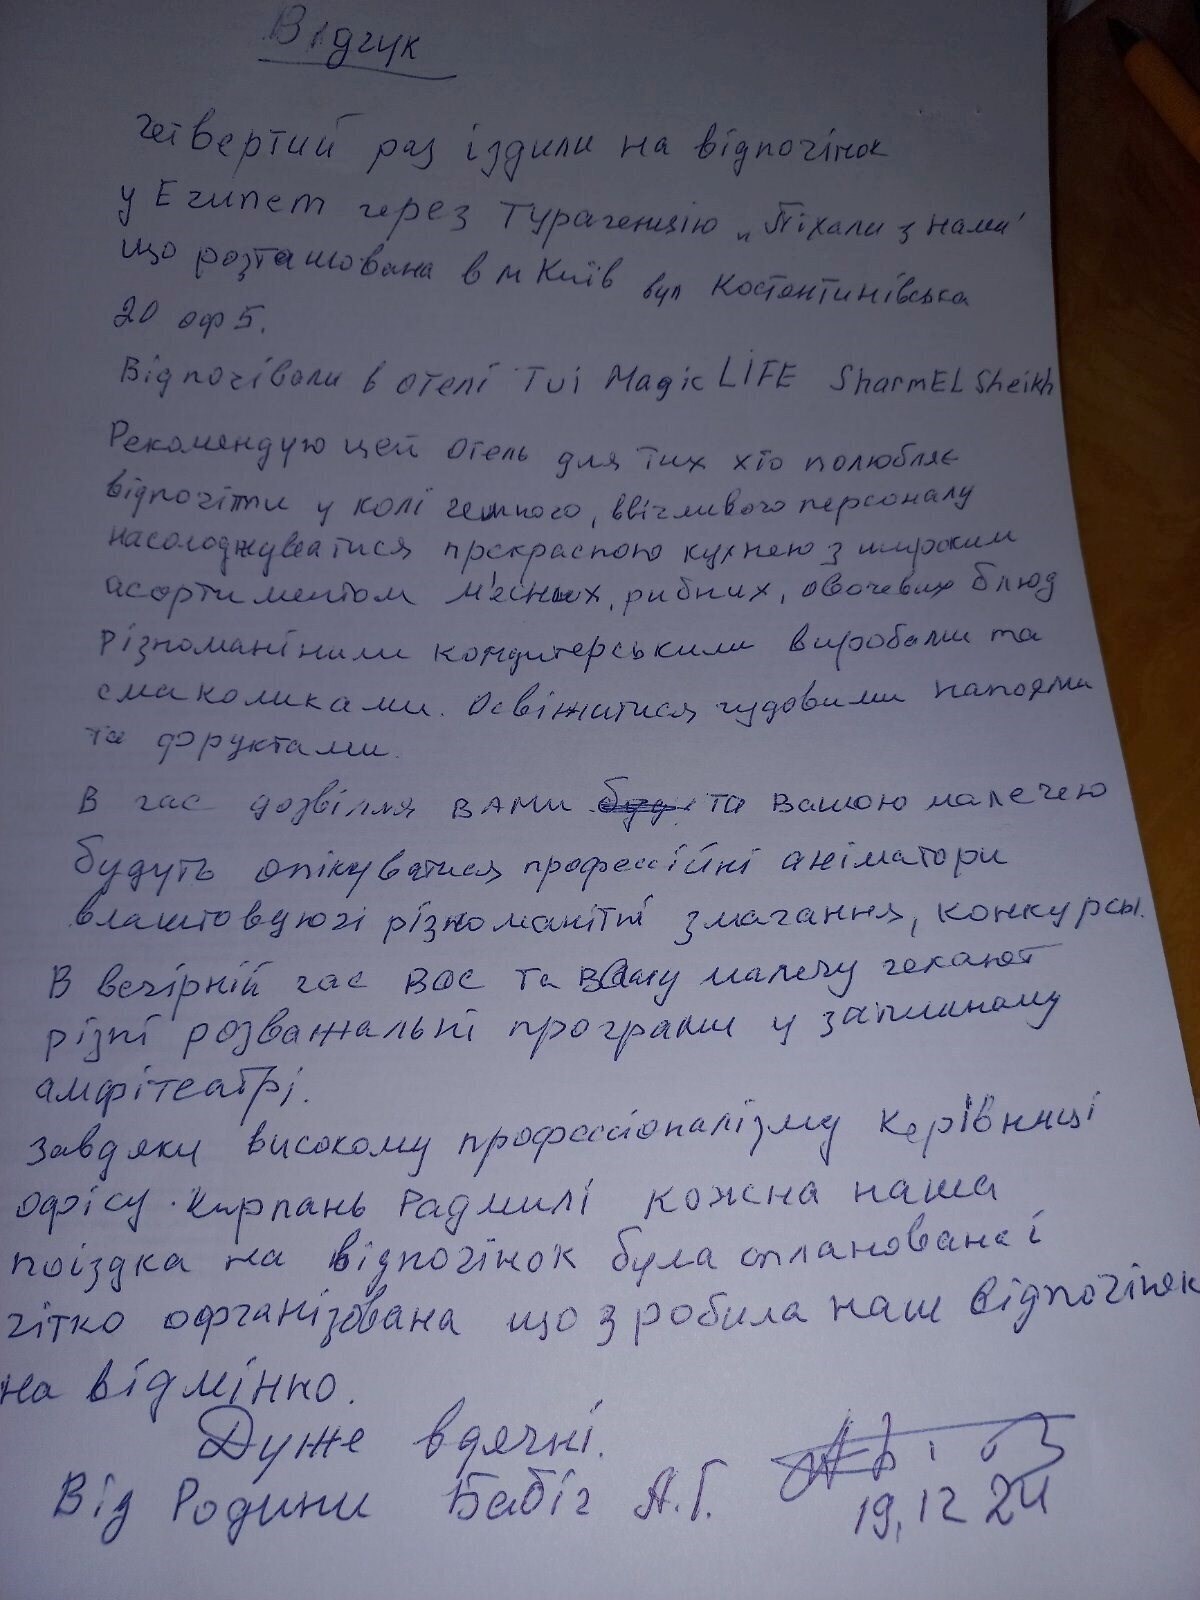 Відгук
Четвертий раз їздили на відпочінок
у Египет через Турагенцію „Поїхали з нами"
що розташована в м Київ вул Костянтинівська
20 оф 5.
Відпочівали в отелі Tui Magic LIFE Sharm EL Sheikh
Рекомендую цей отель для тих хто полюбляє
відпочіти у колі чемного, ввічливого персоналу
насолоджуватися прекрасною кухнею з широким
асортиментом м'ясных, рибних, овочевих блюд
різноманіними кондитерськими виробами та
смаколиками. Освіжитися чудовими напоями
та фруктами.
В час дозвілля ВАМИ та вашою малечею
будуть опікуватися профессійні аніматори
влаштовуючі різноманітні змагання, конкурсы.
В вечірній час Вас та вашу малечу чекают
різні розважальні програми у затишному
амфітеатрі.
Завдяки високому профессіоналізму керівниці
офісу Кирпань Радмилі кожна наша
поїздка на відпочінок була спланована і
чітко офганізована що зробила наш відпочінок
на відмінно.
Дуже вдячні.
Від Родини Бабіч А.Г.
19,12 24